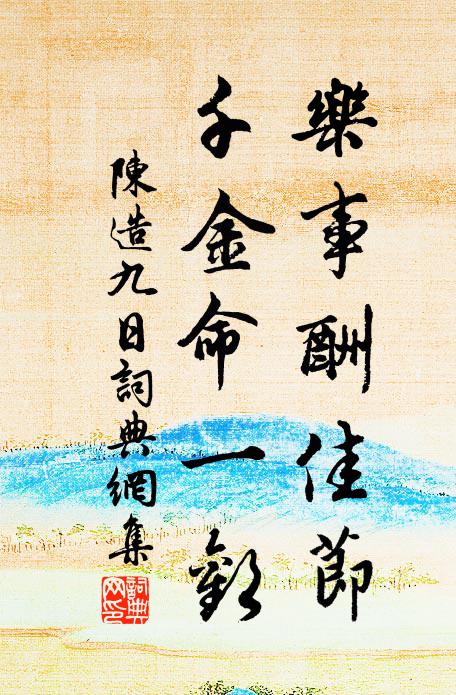 樂事酬佳節
千金命一歡
陳造九日詞典網集
詞典网印